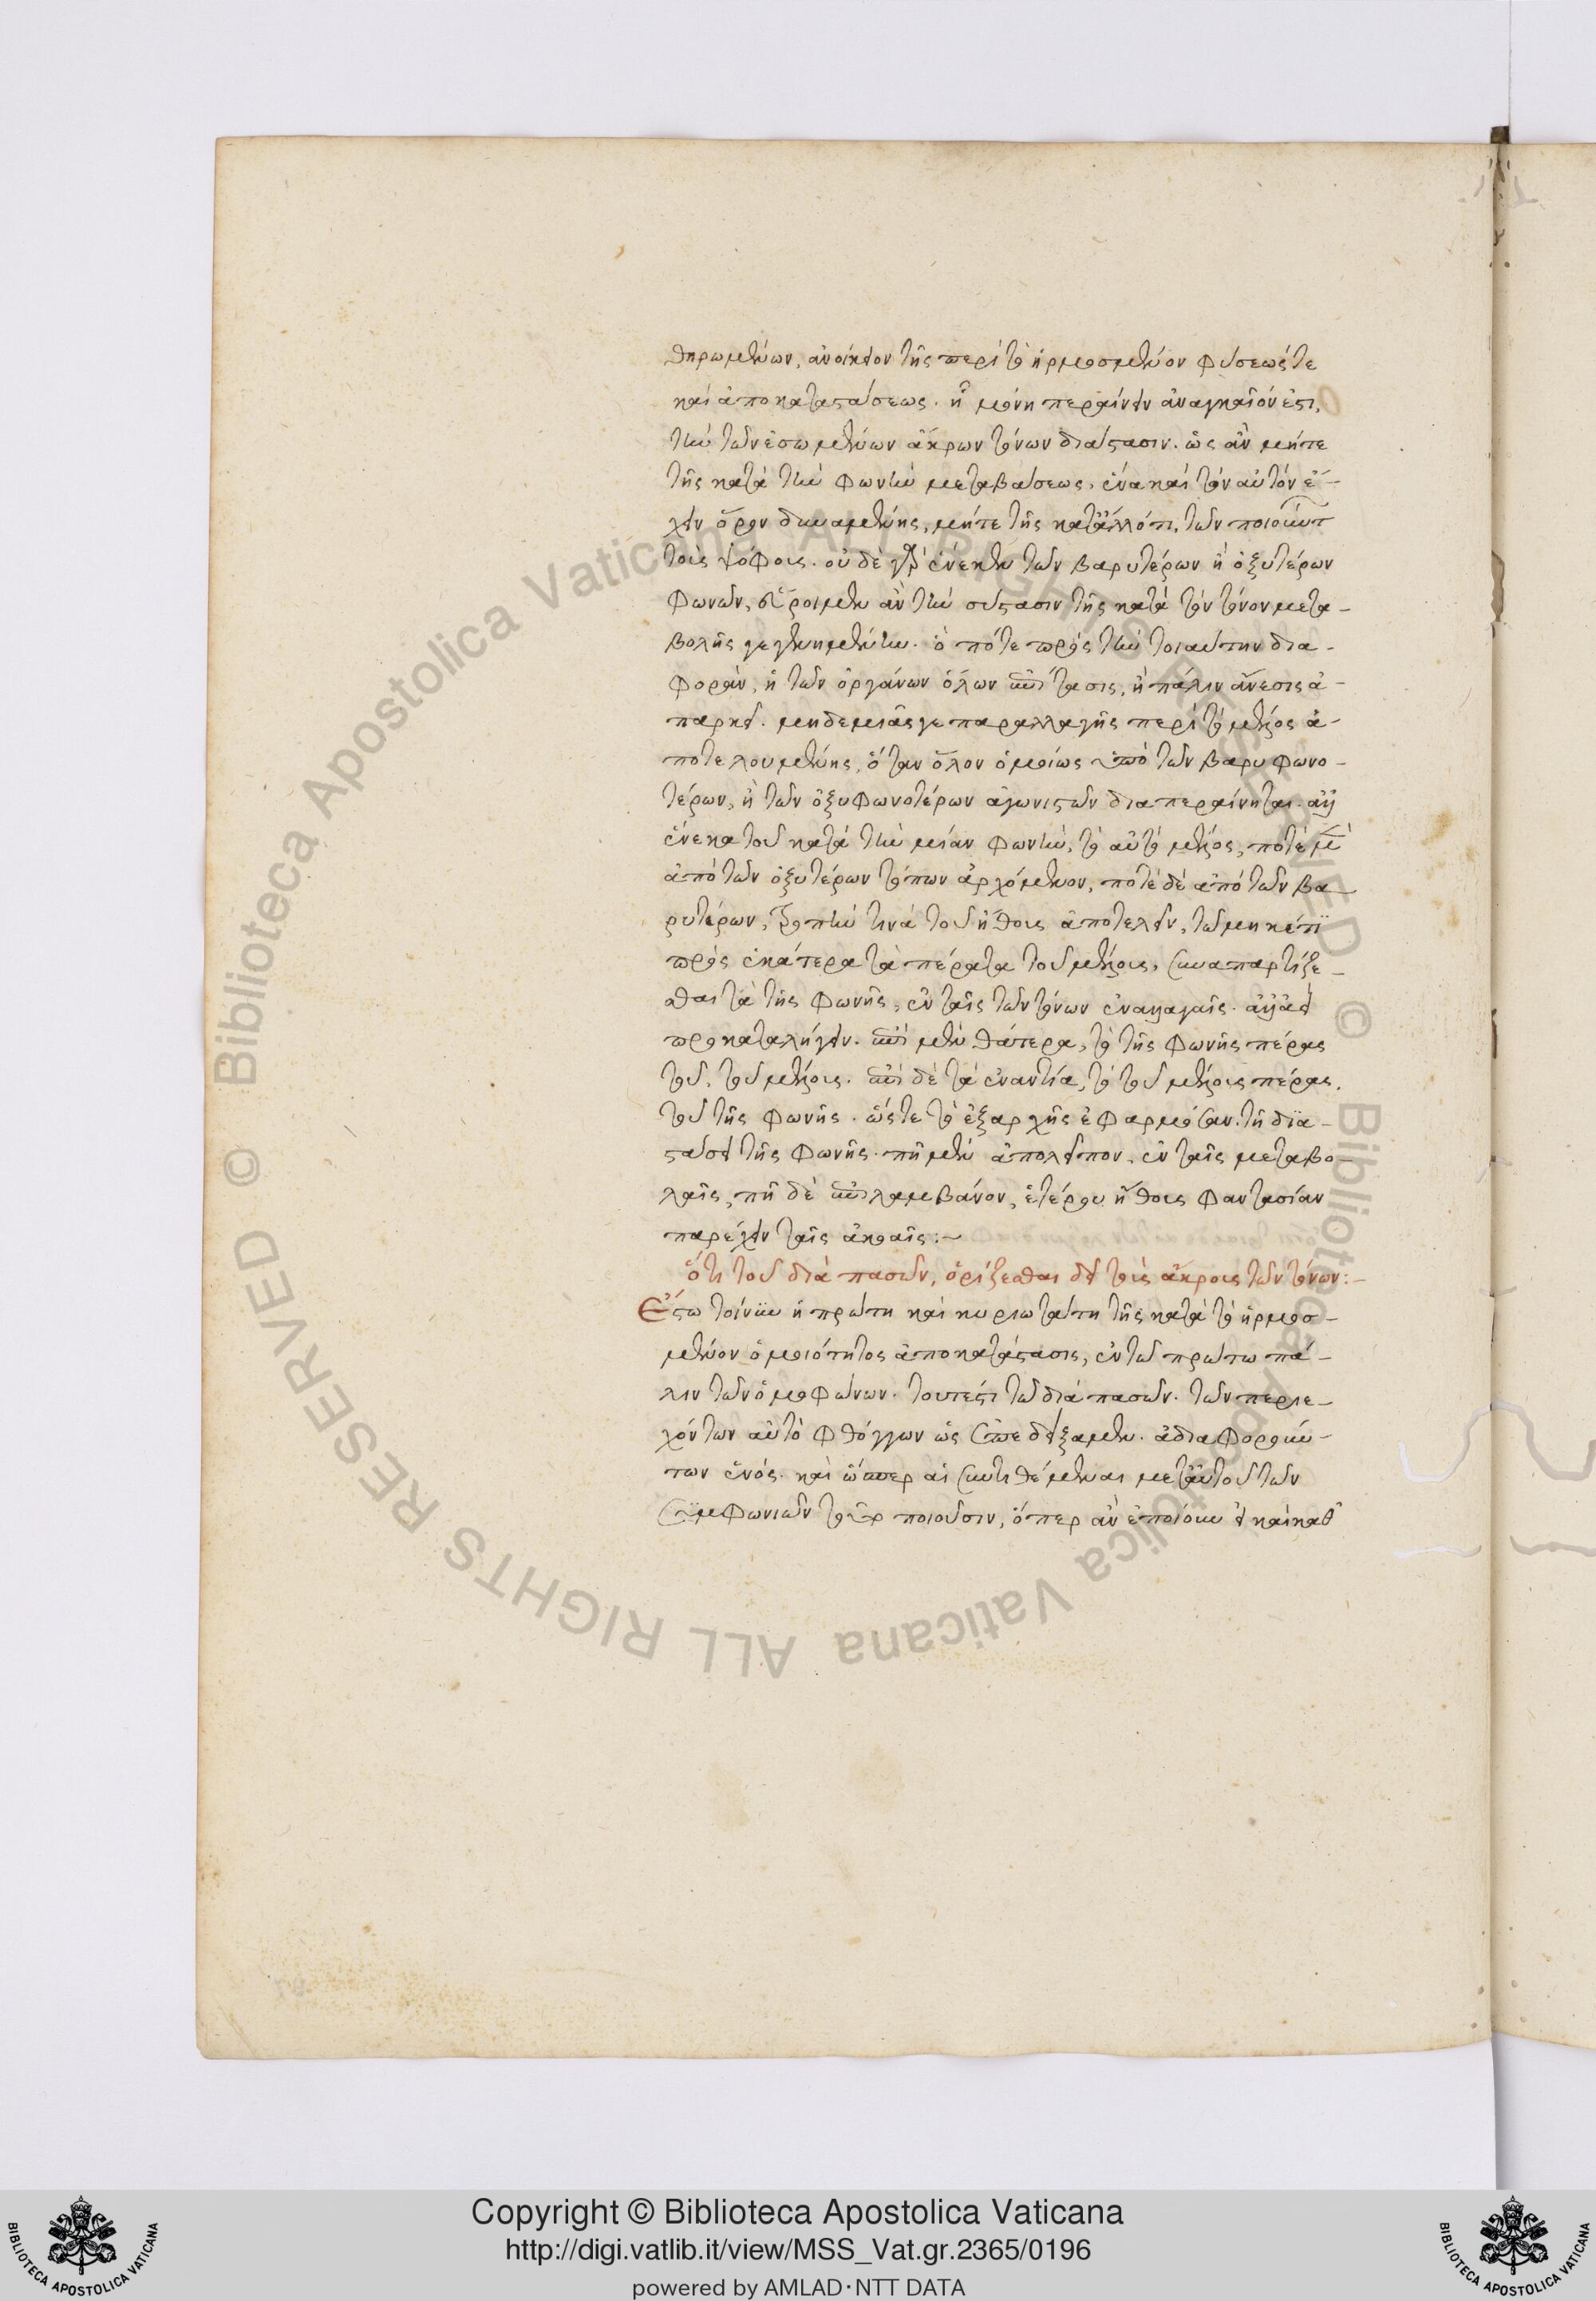 θηρωμένων, ἀνοίκειον τῆς περὶ τὸ ἡρμοσμένον φύσεώς τε
καὶ ἀποκαταστάσεως. ᾗ μόνῃ περαίνειν ἀναγκαῖόν ἐστι,
τὴν τῶν ἐσωμένων ἄκρων τόνων διάστασιν. ὡς ἂν μήτε
τῆς κατὰ τὴν φωνὴν μεταβάσεως, ἕνα καὶ τὸν αὐτὸν ἔ-
χειν ὅρον δυναμένης, μήτε τῆς κατ' ἄλλό τι τῶν ποιούντ
τοὺς ψόφους. οὐδὲ γὰρ ἕνεκεν τῶν βαρυτέρων ἢ ὀξυτέρων
φωνῶν, εὕροιμεν ἂν τὴν σύστασιν τῆς κατὰ τὸν τόνον μετα-
βολῆς γεγενημένην. ὁπότε πρὸς τὴν τοιαύτην δια-
φορὰν, ἡ τῶν ὀργάνων ὅλων ἐπίτασις, ἢ πάλιν ἄνεσις ἀ-
παρκεῖ. μηδεμιᾶς γε παραλλαγῆς περὶ τὸ μέλος ἀ-
ποτελουμένης, ὅταν ὅλον ὁμοίως ὑπὸ τῶν βαρυφωνο-
τέρων, ἢ τῶν ὀξυφωνοτέρων ἀγωνιστῶν διαπεραίνηται. ἀλλ
ἕνεκα τοῦ κατὰ τὴν μίαν φωνὴν, τὸ αὐτὸ μέλος, ποτὲ μὲν
ἀπὸ τῶν ὀξυτέρων τόπων ἀρχόμενον, ποτὲ δὲ ἀπὸ τῶν βα-
ρυτέρων, τροπήν τινα τοῦ ἤθους ἀποτελεῖν, τῷ μηκέτι
πρὸς ἑκάτερα τὰ πέρατα τοῦ μέλους, συναπαρτίζε-
σθαι τὰ τῆς φωνῆς, ἐν ταῖς τῶν τόνων ἐναλλαγαῖς. ἀλλ' ἀεὶ
προκαταλήγειν. ἐπὶ μὲν θάτερα, τὸ τῆς φωνῆς πέρας
τοῦ, τοῦ μέλους. ἐπὶ δὲ τὰ ἐναντία, τὸ τοῦ μέλους πέρας,
τοῦ τῆς φωνῆς. ὥστε τὸ ἐξαρχῆς ἐφαρμόσαν. τῇ δια-
στάσει τῆς φωνῆς. πῇ μὲν ἀπολεῖπον, ἐν ταῖς μεταβο-
λαῖς, πῇ δὲ ἐπιλαμβάνον, ἑτέρου ἤθους φαντασίαν
παρέχειν ταῖς ἀκοαῖς:~
ὅτι τοῦ διὰ πασῶν, ὁρίζεσθαι δεῖ τοὺς ἄκρους τῶν τόνων:-
Ἔστω τοίνυν ἡ πρώτη καὶ κυριωτάτη τῆς κατὰ τὸ ἡρμοσ-
μένον ὁμοιότητος ἀποκατάστασις, ἐν τῷ πρώτω πά-
λιν τῶν ὁμοφώνων. τουτέστι τῷ διὰ πασῶν. τῶν περιε-
χόντων αὐτὸ φθόγγων ὡς ἐπεδείξαμεν. ἀδιαφορούν-
των ἑνός. καὶ ὥσπερ αἱ συντιθέμεναι μετ' αὐτοῦ τῶν
συμφωνιῶν ταὐτὸ ποιοῦσιν, ὅπερ ἂν ἐποίουν εἰ καὶ καθ'
Copyright © Biblioteca Apostolica Vaticana
http://digi.vatlib.it/view/MSS_Vat.gr.2365/0196
powered by AMLAD·NTT DATA
BIBLIOTECA APOSTOLICA VATICANA
BIBLIOTECA APOSTOLICA VATICANA
© Biblioteca Apostolica Vaticana ALL RIGHTS RESERVED © Biblioteca Apostolica Vaticana ALL RIGHTS RESERVED